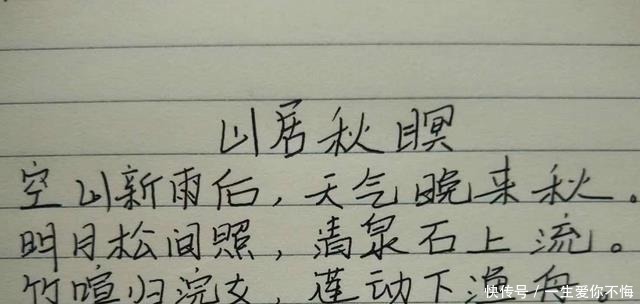 山居秋暝
空山新雨后，天气晚来秋。
明月松间照，清泉石上流。
竹喧归浣女，莲动下渔舟
快传号／一生爱你不悔